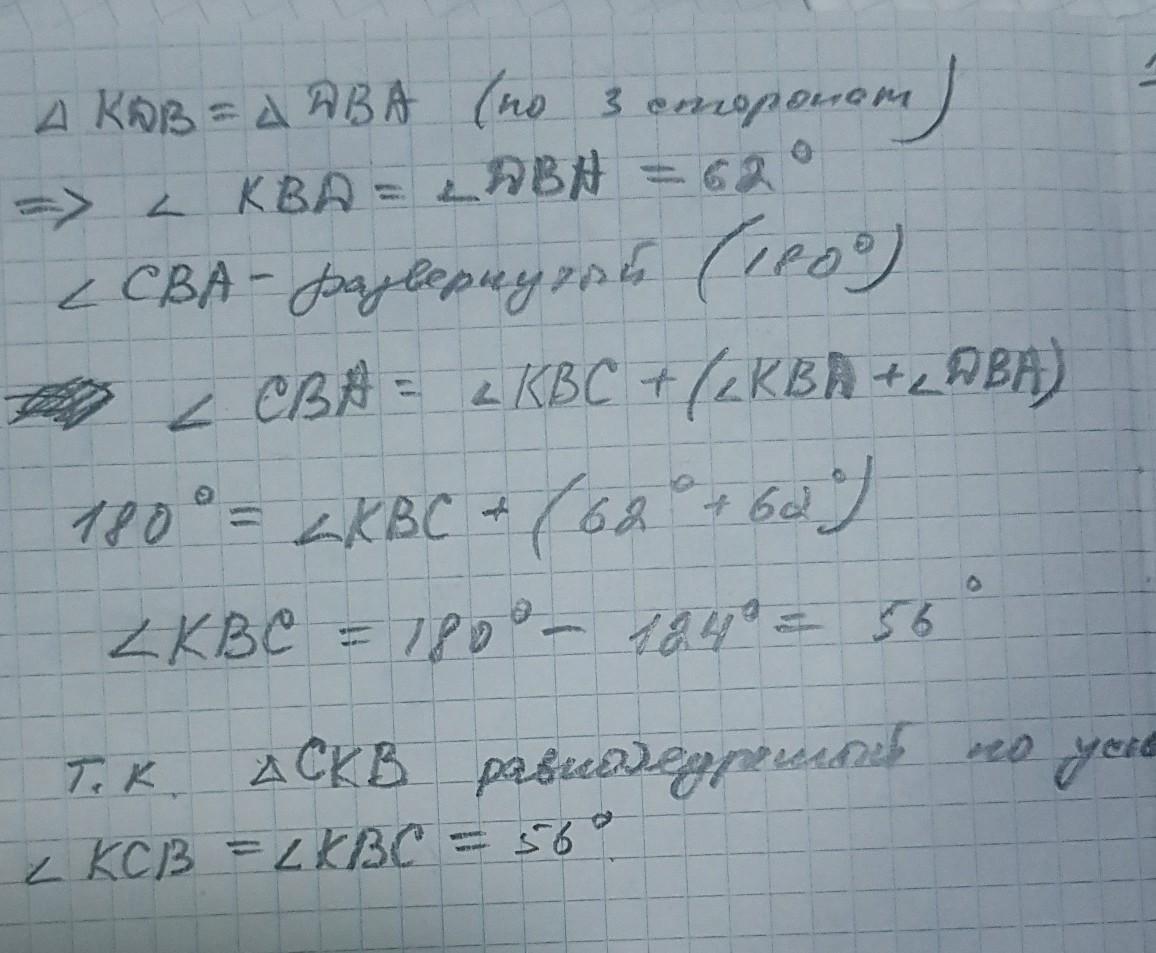 Δ KDB = Δ DBA (по 3 сторонам)
=> ∠ KBD = ∠ DBA = 62°
∠ CBA - развернутый (180°)
∠ CBA = ∠KBC + (∠KBD + ∠DBA)
180° = ∠KBC + (62° + 62°)
∠KBC = 180° - 124° = 56°
Т.к. Δ CKB равнобедренный по
∠ KCB = ∠KBC = 56°.